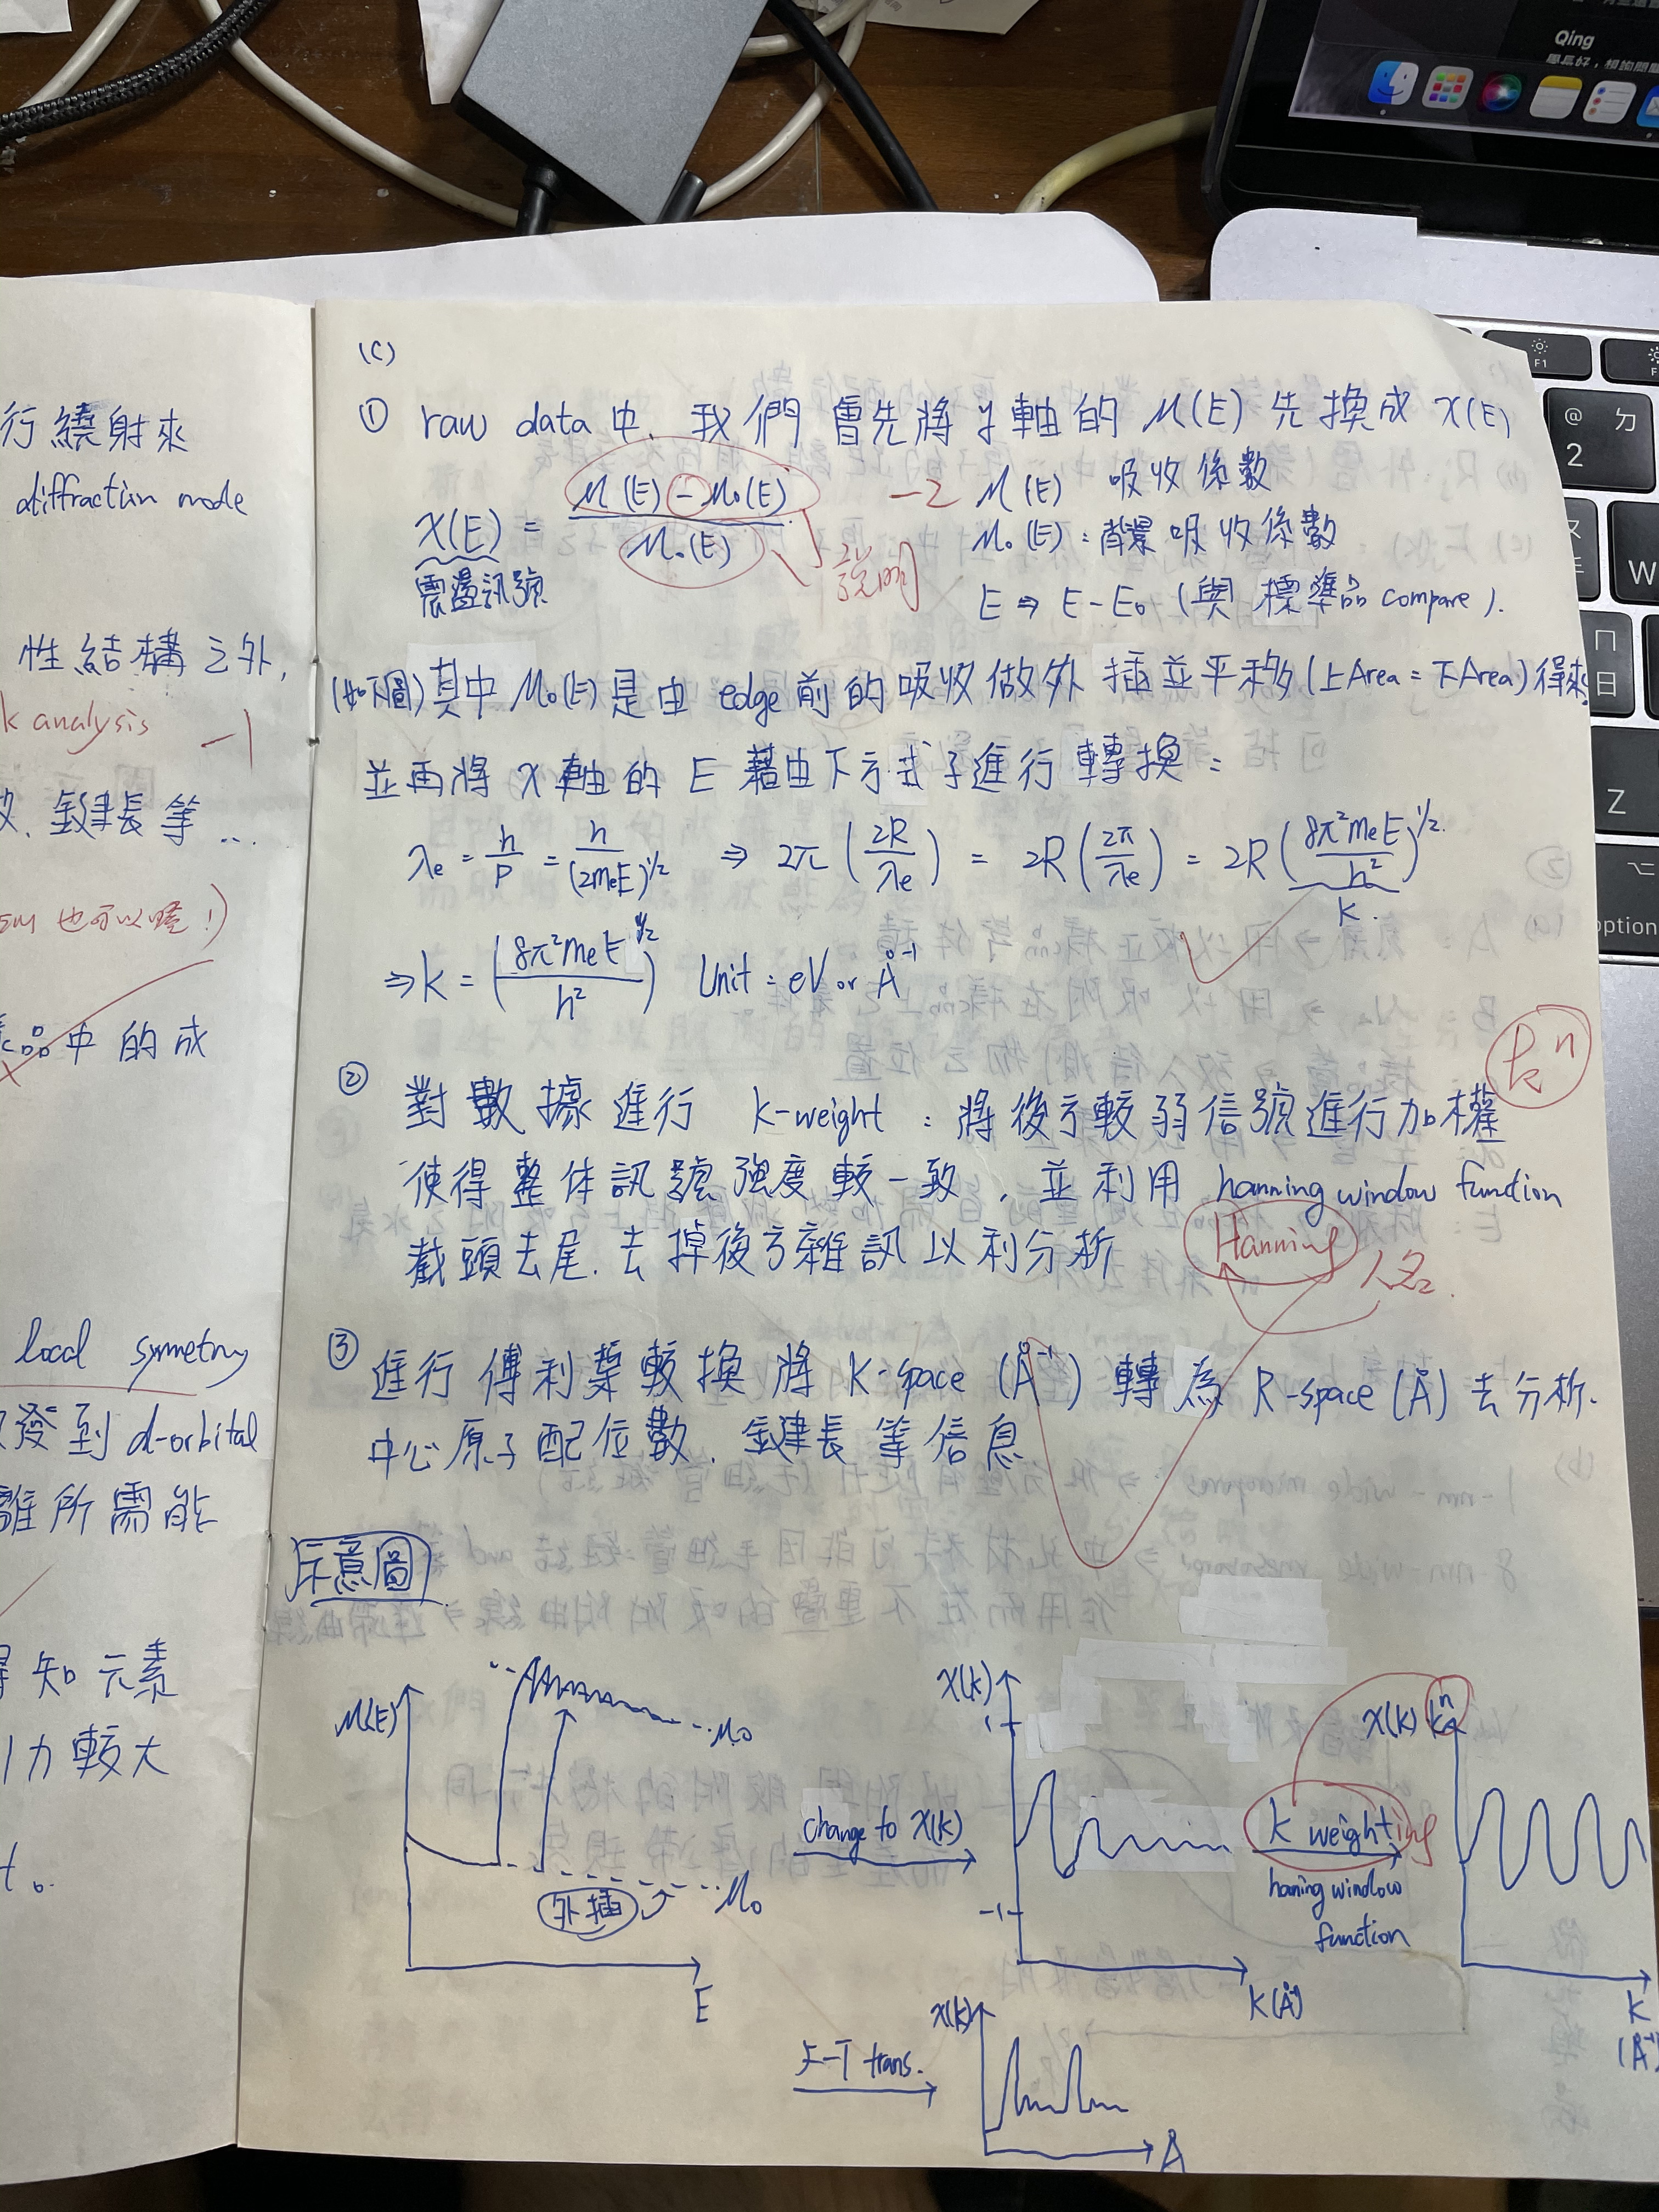 Qing
行繞射來
diffraction mode
性結構之外,
k analysis -1
鍵長等..
也可以喔!)
中的成
local symmetry
發到 d-orbital
離所需能
知元素
力較大
(C)
① raw data 中, 我們會先將 y 軸的 μ(E) 先換成 χ(E)
χ(E) = μ(E) - μ₀(E) / μ₀(E)
-2
說明
震盪訊號
μ(E) 吸收係數
μ₀(E) : 背景吸收係數
E ⇒ E-E₀ (與標準品 compare).
(如下圖) 其中 μ₀(E) 是由 edge 前的吸收做外插並平移 (上Area = 下Area) 得來
並再將 x 軸的 E 藉由下方式子進行轉換 :
λe = h/p = h/(2meE)^1/2 ⇒ 2π (2R/λe) = 2R (2π/λe) = 2R (8π²meE/h²)^1/2.
k.
⇒ k = (8π²meE/h²)^1/2 Unit : eV or Å⁻¹
② 對數據進行 k-weight : 將後方較弱信號進行加權
使得整体訊號強度較一致, 並利用 hanning window function
截頭去尾. 去掉後方雜訊以利分析
Hanning
人名.
③ 進行傅利葉轉換將 K-space (Å⁻¹) 轉為 R-space (Å) 去分析.
中心原子配位數. 鍵長等信息
示意圖
μ(E)
μ₀
外插
μ₀
E
change to χ(k)
χ(k)
1
-1
k(Å⁻¹)
k weighting
haning window
function
χ(k) kⁿ
k
(Å⁻¹)
F-T trans.
χ(k)
Å
F1
@
2
ㄉ
W
Z
option